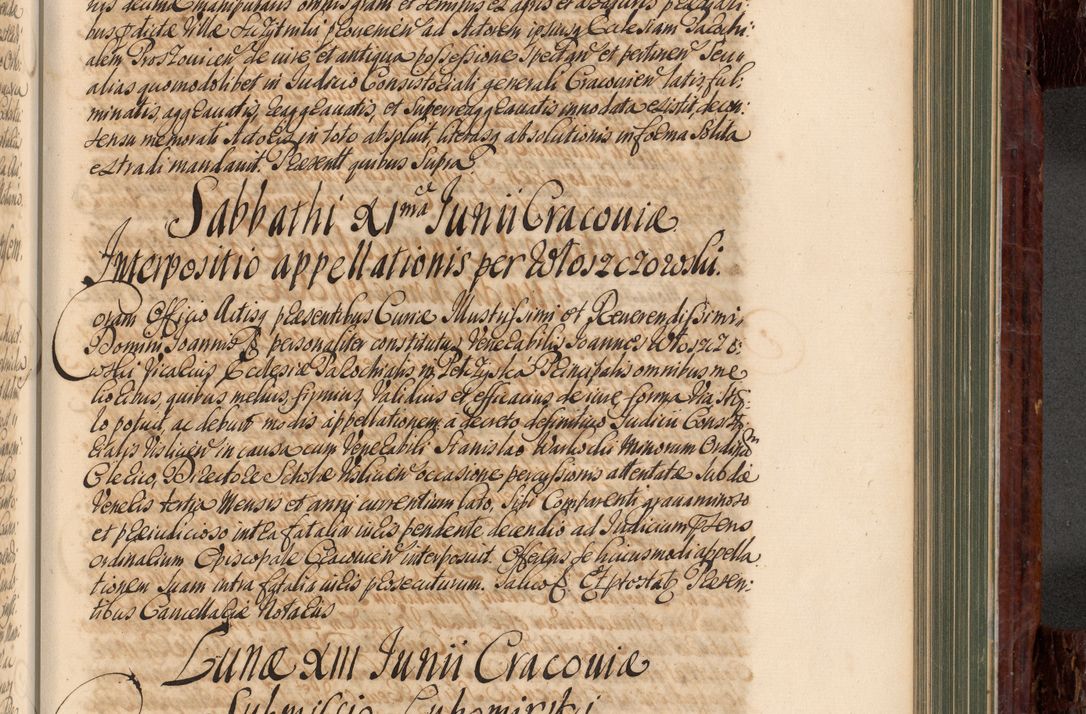 nis decima manipularis omnis grani et seminis ex agris et
bus praedictae Villae provenien̄ ad Actorem ipsiusq̄ Ecclesiam Parochi
alem Proszovicen̄ de iure et antiqua possessione spectan̄ et pertinen̄ seu
alias quomodolibet in Iudicio Consistoriali generali Cracovien̄ latis, ful:
minatis, aggravatis, reaggravatis, et superreaggravatis innodata extitit, de con:
sensu memorati Actoris in toto absolvit, literasq̄ absolutionis in forma solita
extradi mandavit. Praesentt̄ quibus supra.
Sabbathi XIma Iunii Cracoviae
Interpositio appellationis per Włoszczowski.
Coram Officio Actisq̄ praesentibus Curiae Illustrissimi et Reverendissimi
Domini Ioannis personaliter constitutus Venerabilis Ioannes Włoszczo:
wski Vicarius Ecclesiae Parochialis in Principalis omnibus me
lioribus, quibus melius, firmius, validius et efficacius de iure forma via sty:
lo potuit, ac debuit modis appellationem a decreto definitivo Iudicii Consist:
rialis Vislicien̄ in causa cum Venerabili Stanislao Warlocki Minorum Ordinum
Clerico, Directore Scholae Vislicien̄ occasione percussionis attentatae sub die
Veneris tertia Mensis et anni currentium lato, sibi Comparenti gravaminoso
et praeiudicioso intra fatalia iuris pendente decendio ad Iudicium praesens
ordinarium Episcopale Cracovien̄ interposuit. Offerens se huiusmodi appella
tionem suam intra fatalia iuris persecuturum. Salico Et prostat Praesen:
tibus Cancellariae Notariis
Lunae XIII Iunii Cracoviae
Submissio Lubomirski